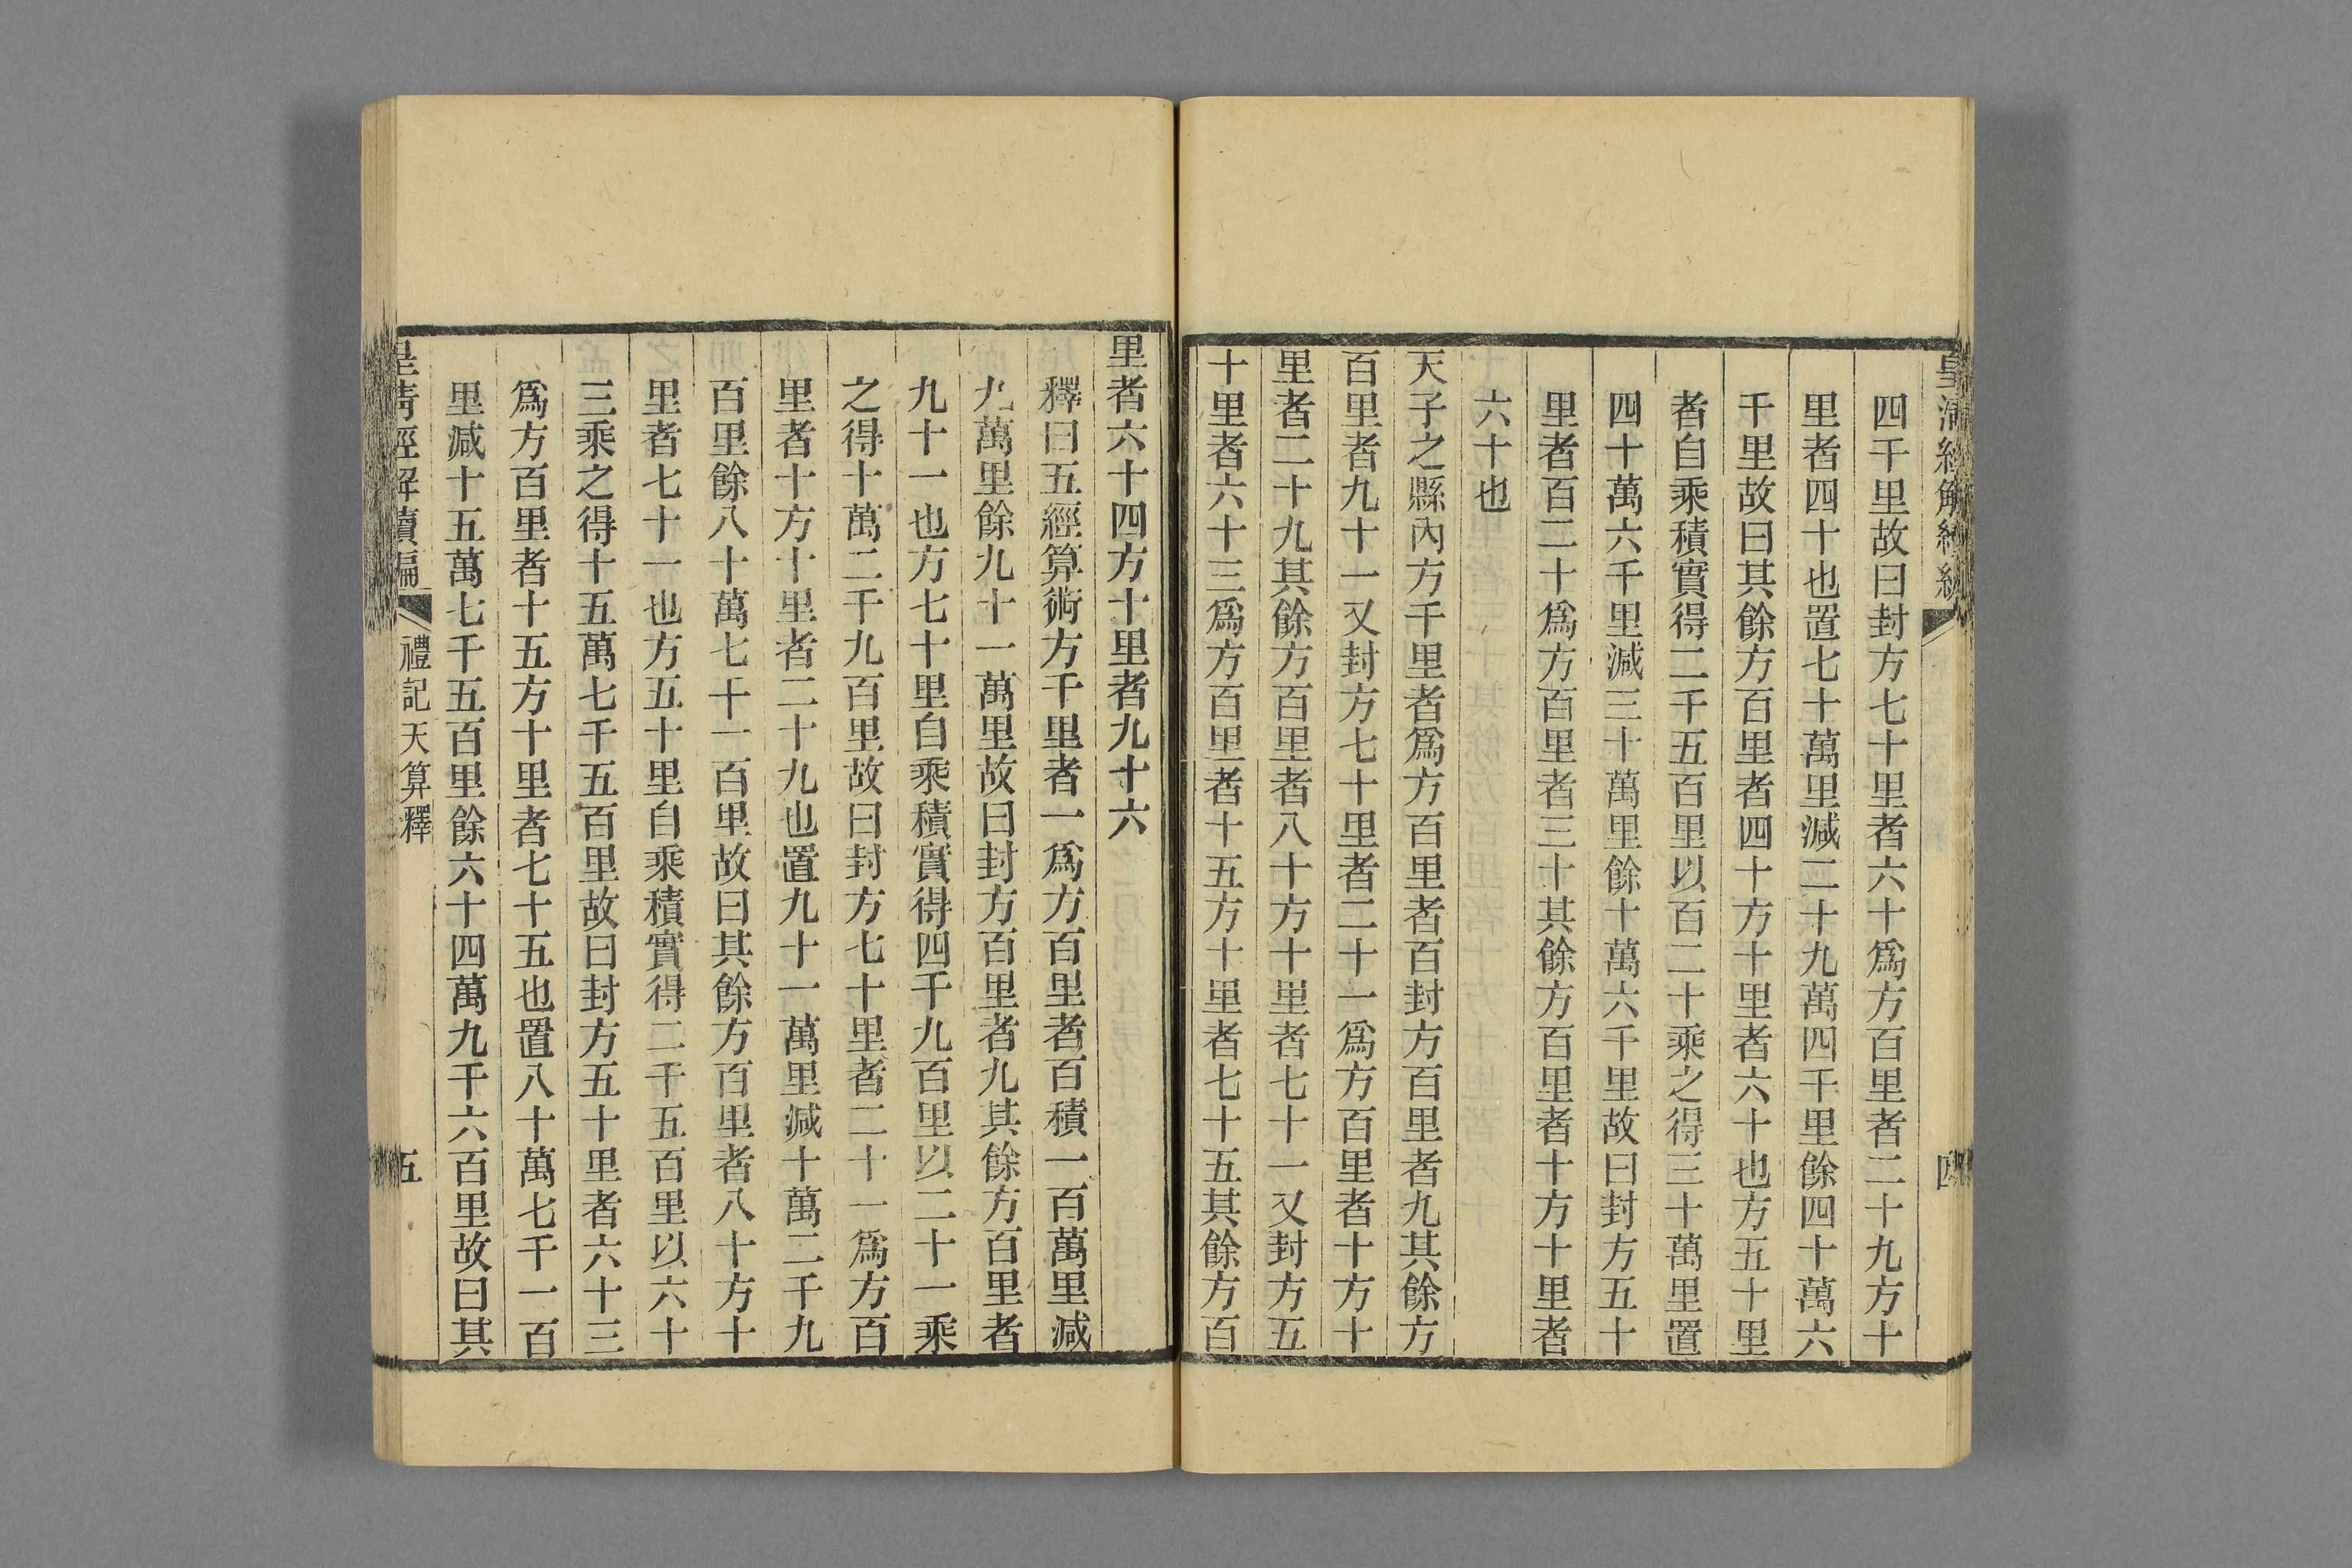 四千里故曰封方七十里者六十爲方百里者二十九方十
里者四十也置七十萬里減二十九萬四千里餘四十萬六
千里故曰其餘方百里者四十方十里者六十也方五十里
者自乘積實得二千五百里以百二十乘之得三十萬里置
四十萬六千里減三十萬里餘十萬六千里故曰封方五十
里者百二十爲方百里者三十其餘方百里者十方十里者
六十也
天子之縣內方千里者爲方百里者百封方百里者九其餘方
百里者九十一又封方七十里者二十一爲方百里者十方十
里者二十九其餘方百里者八十方十里者七十一又封方五
十里者六十三爲方百里者十五方十里者七十五其餘方百
里者六十四方十里者九十六
釋曰五經算術方千里者一爲方百里者百積一百萬里減
九萬里餘九十一萬里故曰封方百里者九其餘方百里者
九十一也方七十里自乘積實得四千九百里以二十一乘
之得十萬二千九百里故曰封方七十里者二十一爲方百
里者十方十里者二十九也置九十一萬里減十萬二千九
百里餘八十萬七千一百里故曰其餘方百里者八十方十
里者七十一也方五十里自乘積實得二千五百里以六十
三乘之得十五萬七千五百里故曰封方五十里者六十三
爲方百里者十五方十里者七十五也置八十萬七千一百
里減十五萬七千五百里餘六十四萬九千六百里故曰其
皇清經解續編
禮記天算釋
五